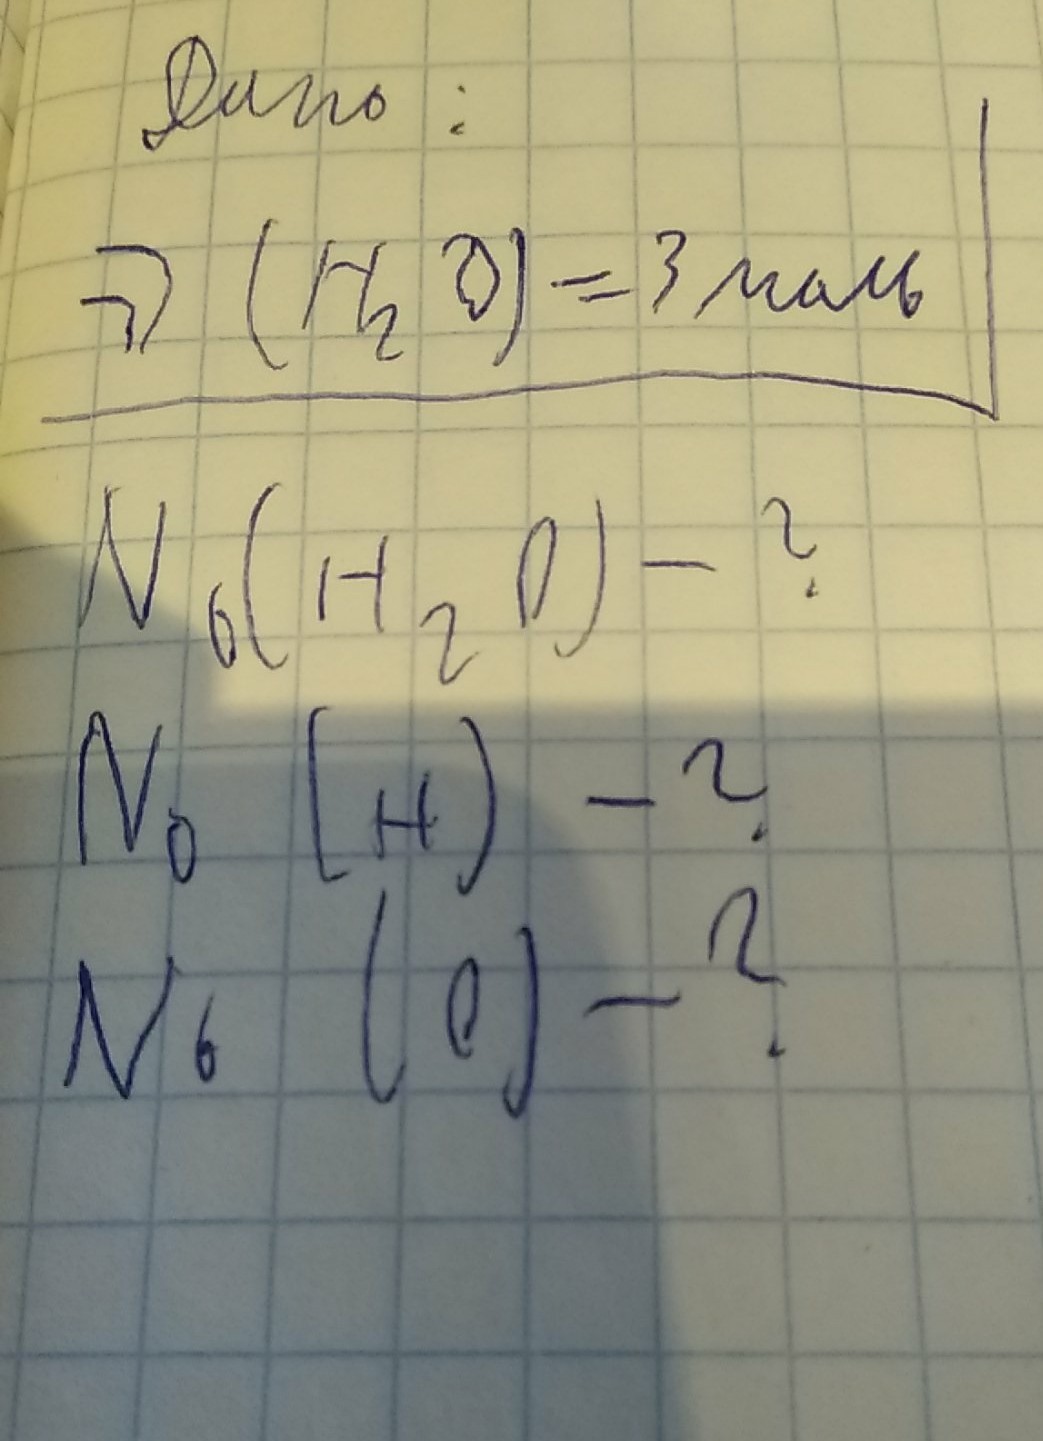 Дано:
n (H₂O) = 3 моль
N₀(H₂O) - ?
N₀ (H) - ?
N₀ (O) - ?